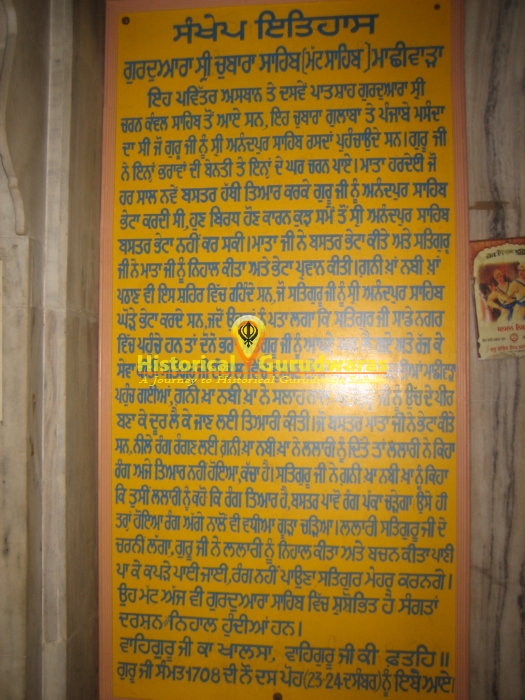 ਸੰਖੇਪ ਇਤਿਹਾਸ
ਗੁਰਦੁਆਰਾ ਸ੍ਰੀ ਚੁਬਾਰਾ ਸਾਹਿਬ (ਮੱਟ ਸਾਹਿਬ) ਮਾਛੀਵਾੜਾ
ਇਹ ਪਵਿੱਤਰ ਅਸਥਾਨ ਤੇ ਦਸਵੇਂ ਪਾਤਸ਼ਾਹ ਗੁਰਦੁਆਰਾ ਸ੍ਰੀ
ਚਰਨ ਕੰਵਲ ਸਾਹਿਬ ਤੋਂ ਆਏ ਸਨ, ਇਹ ਚੁਬਾਰਾ ਗੁਲਾਬਾ ਤੇ ਪੰਜਾਬੇ ਮਸੰਦਾ
ਦਾ ਸੀ ਜੋ ਗੁਰੂ ਜੀ ਨੂੰ ਸ੍ਰੀ ਅਨੰਦਪੁਰ ਸਾਹਿਬ ਰਸਦਾਂ ਪੁਹੰਚਾਉਂਦੇ ਸਨ। ਗੁਰੂ ਜੀ
ਨੇ ਇਨ੍ਹਾਂ ਭਰਾਵਾਂ ਦੀ ਬੇਨਤੀ ਤੇ ਇਨ੍ਹਾਂ ਦੇ ਘਰ ਚਰਨ ਪਾਏ। ਮਾਤਾ ਹਰਦੇਈ ਜੋ
ਹਰ ਸਾਲ ਨਵੇਂ ਬਸਤਰ ਹੱਥੀ ਤਿਆਰ ਕਰਕੇ ਗੁਰੂ ਜੀ ਨੂੰ ਅਨੰਦਪੁਰ ਸਾਹਿਬ
ਭੇਟਾ ਕਰਦੀ ਸੀ, ਹੁਣ ਬਿਰਧ ਹੋਣ ਕਾਰਨ ਕੁਝ ਸਮੇਂ ਤੋਂ ਸ੍ਰੀ ਅਨੰਦਪੁਰ ਸਾਹਿਬ
ਬਸਤਰ ਭੇਟਾ ਨਹੀਂ ਕਰ ਸਕੀ। ਮਾਤਾ ਜੀ ਨੇ ਬਸਤਰ ਭੇਟਾ ਕੀਤੇ ਅਤੇ ਸਤਿਗੁਰੂ
ਜੀ ਨੇ ਮਾਤਾ ਜੀ ਨੂੰ ਨਿਹਾਲ ਕੀਤਾ ਅਤੇ ਭੇਟਾ ਪ੍ਰਵਾਨ ਕੀਤੀ। ਗ਼ਨੀ ਖ਼ਾਂ ਨਬੀ ਖ਼ਾਂ
ਪਠਾਣ ਵੀ ਇਸ ਸ਼ਹਿਰ ਵਿੱਚ ਰਹਿੰਦੇ ਸਨ, ਜੋ ਸਤਿਗੁਰੂ ਜੀ ਨੂੰ ਸ੍ਰੀ ਅਨੰਦਪੁਰ ਸਾਹਿਬ
ਘੋੜੇ ਭੇਟਾ ਕਰਦੇ ਸਨ, ਜਦੋਂ ਪਤਾ ਲਗਾ ਕਿ ਸਤਿਗੁਰੂ ਜੀ ਸਾਡੇ ਨਗਰ
ਵਿੱਚ ਪਹੁੰਚੇ ਹਨ ਤਾਂ ਦੋਨੋਂ ਜੀ ਨੂੰ
Historical Gurudwaras
A Journey to Historical Gurudwara Sahibs
ਮਾਛੀਵਾੜਾ
ਪਹੁੰਚ ਗਈਆਂ, ਗ਼ਨੀ ਖ਼ਾਂ ਨਬੀ ਖ਼ਾਂ ਨੇ ਨੂੰ ਉੱਚ ਦੇ ਪੀਰ
ਬਣਾ ਕੇ ਦੂਰ ਲੈ ਕੇ ਜਾਣ ਲਈ ਤਿਆਰੀ ਕੀਤੀ। ਜੋ ਬਸਤਰ ਮਾਤਾ ਜੀ ਨੇ ਭੇਟਾ ਕੀਤੇ
ਸਨ, ਨੀਲੇ ਰੰਗ ਰੰਗਣ ਲਈ ਗ਼ਨੀ ਖ਼ਾਂ ਨਬੀ ਖ਼ਾਂ ਨੇ ਲਲਾਰੀ ਨੂੰ ਦਿੱਤੇ ਤਾਂ ਲਲਾਰੀ ਨੇ ਕਿਹਾ
ਰੰਗ ਅਜੇ ਤਿਆਰ ਨਹੀਂ ਹੋਇਆ, ਕੱਚਾ ਹੈ। ਸਤਿਗੁਰੂ ਜੀ ਨੇ ਗ਼ਨੀ ਖ਼ਾਂ ਨਬੀ ਖ਼ਾਂ ਨੂੰ ਕਿਹਾ
ਕਿ ਤੁਸੀਂ ਲਲਾਰੀ ਨੂੰ ਕਹੋ ਕਿ ਰੰਗ ਤਿਆਰ ਹੈ, ਬਸਤਰ ਪਾਵੋ ਰੰਗ ਪੱਕਾ ਚੜ੍ਹੇਗਾ ਉਸੇ ਹੀ
ਤਰ੍ਹਾਂ ਹੋਇਆ ਰੰਗ ਅੱਗੇ ਨਾਲੋਂ ਵੀ ਵਧੀਆ ਗੂੜਾ ਚੜਿਆ। ਲਲਾਰੀ ਸਤਿਗੁਰੂ ਜੀ ਦੇ
ਚਰਨੀ ਲੱਗਾ, ਗੁਰੂ ਜੀ ਨੇ ਲਲਾਰੀ ਨੂੰ ਨਿਹਾਲ ਕੀਤਾ ਅਤੇ ਬਚਨ ਕੀਤਾ ਪਾਣੀ
ਪਾ ਕੇ ਕਪੜੇ ਪਾਈ ਜਾਈਂ, ਰੰਗ ਨਹੀਂ ਪਾਉਣਾ ਸਤਿਗੁਰ ਮੇਹਰ ਕਰਨਗੇ।
ਉਹ ਮੱਟ ਅੱਜ ਵੀ ਗੁਰਦੁਆਰਾ ਸਾਹਿਬ ਵਿੱਚ ਸੁਸ਼ੋਭਿਤ ਹੈ ਸੰਗਤਾਂ
ਦਰਸ਼ਨ ਨਿਹਾਲ ਹੁੰਦੀਆਂ ਹਨ।
ਵਾਹਿਗੁਰੂ ਜੀ ਕਾ ਖਾਲਸਾ, ਵਾਹਿਗੁਰੂ ਜੀ ਕੀ ਫ਼ਤਹਿ॥
ਗੁਰੂ ਜੀ ਸੰਮਤ 1708 ਦੀ ਨੌਂ ਦਸ ਪੋਹ (23-24 ਦਸੰਬਰ) ਨੂੰ ਇੱਥੇ ਆਏ।